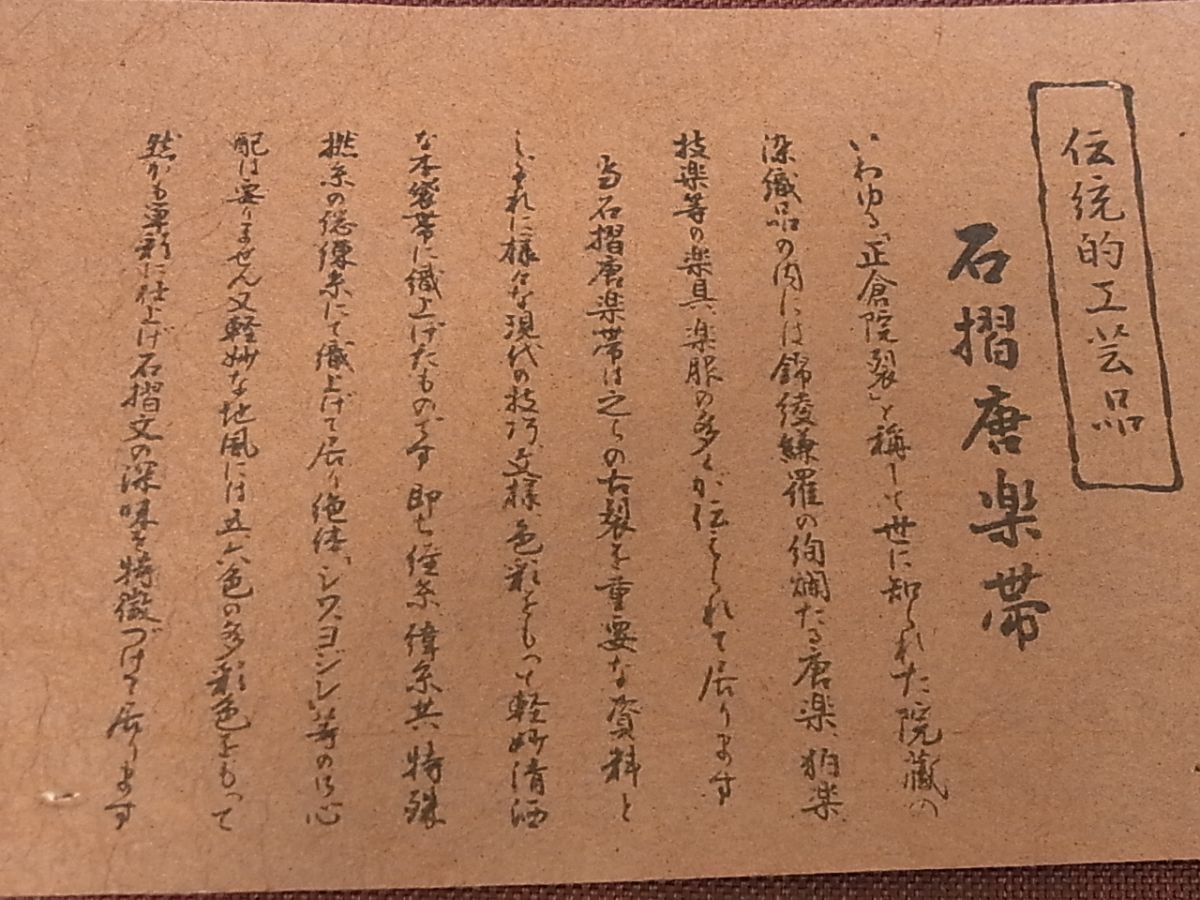 伝統的工芸品
石摺唐楽帯
いわゆる「正倉院裂」と称して世に知られた院蔵の
染織品の内には錦綾縑羅の絢爛たる唐楽、狛楽
技楽等の楽具、楽服の多くが伝えられて居ります
当石摺唐楽帯は之らの古裂を重要な資料と
しそれに様々な現代の技巧、文様、色彩をもって軽妙清洒
な本袋帯に織上げたものです 即ち経糸、緯糸共、特殊
撚糸の總練糸にて織上げて居り絶体「シワ、ヨゴレ」等の御心
配は要りません又軽妙な地風には五、六色の多彩色をもって
然かも重彩に仕上げ石摺文の深味を特徴づけて居ります